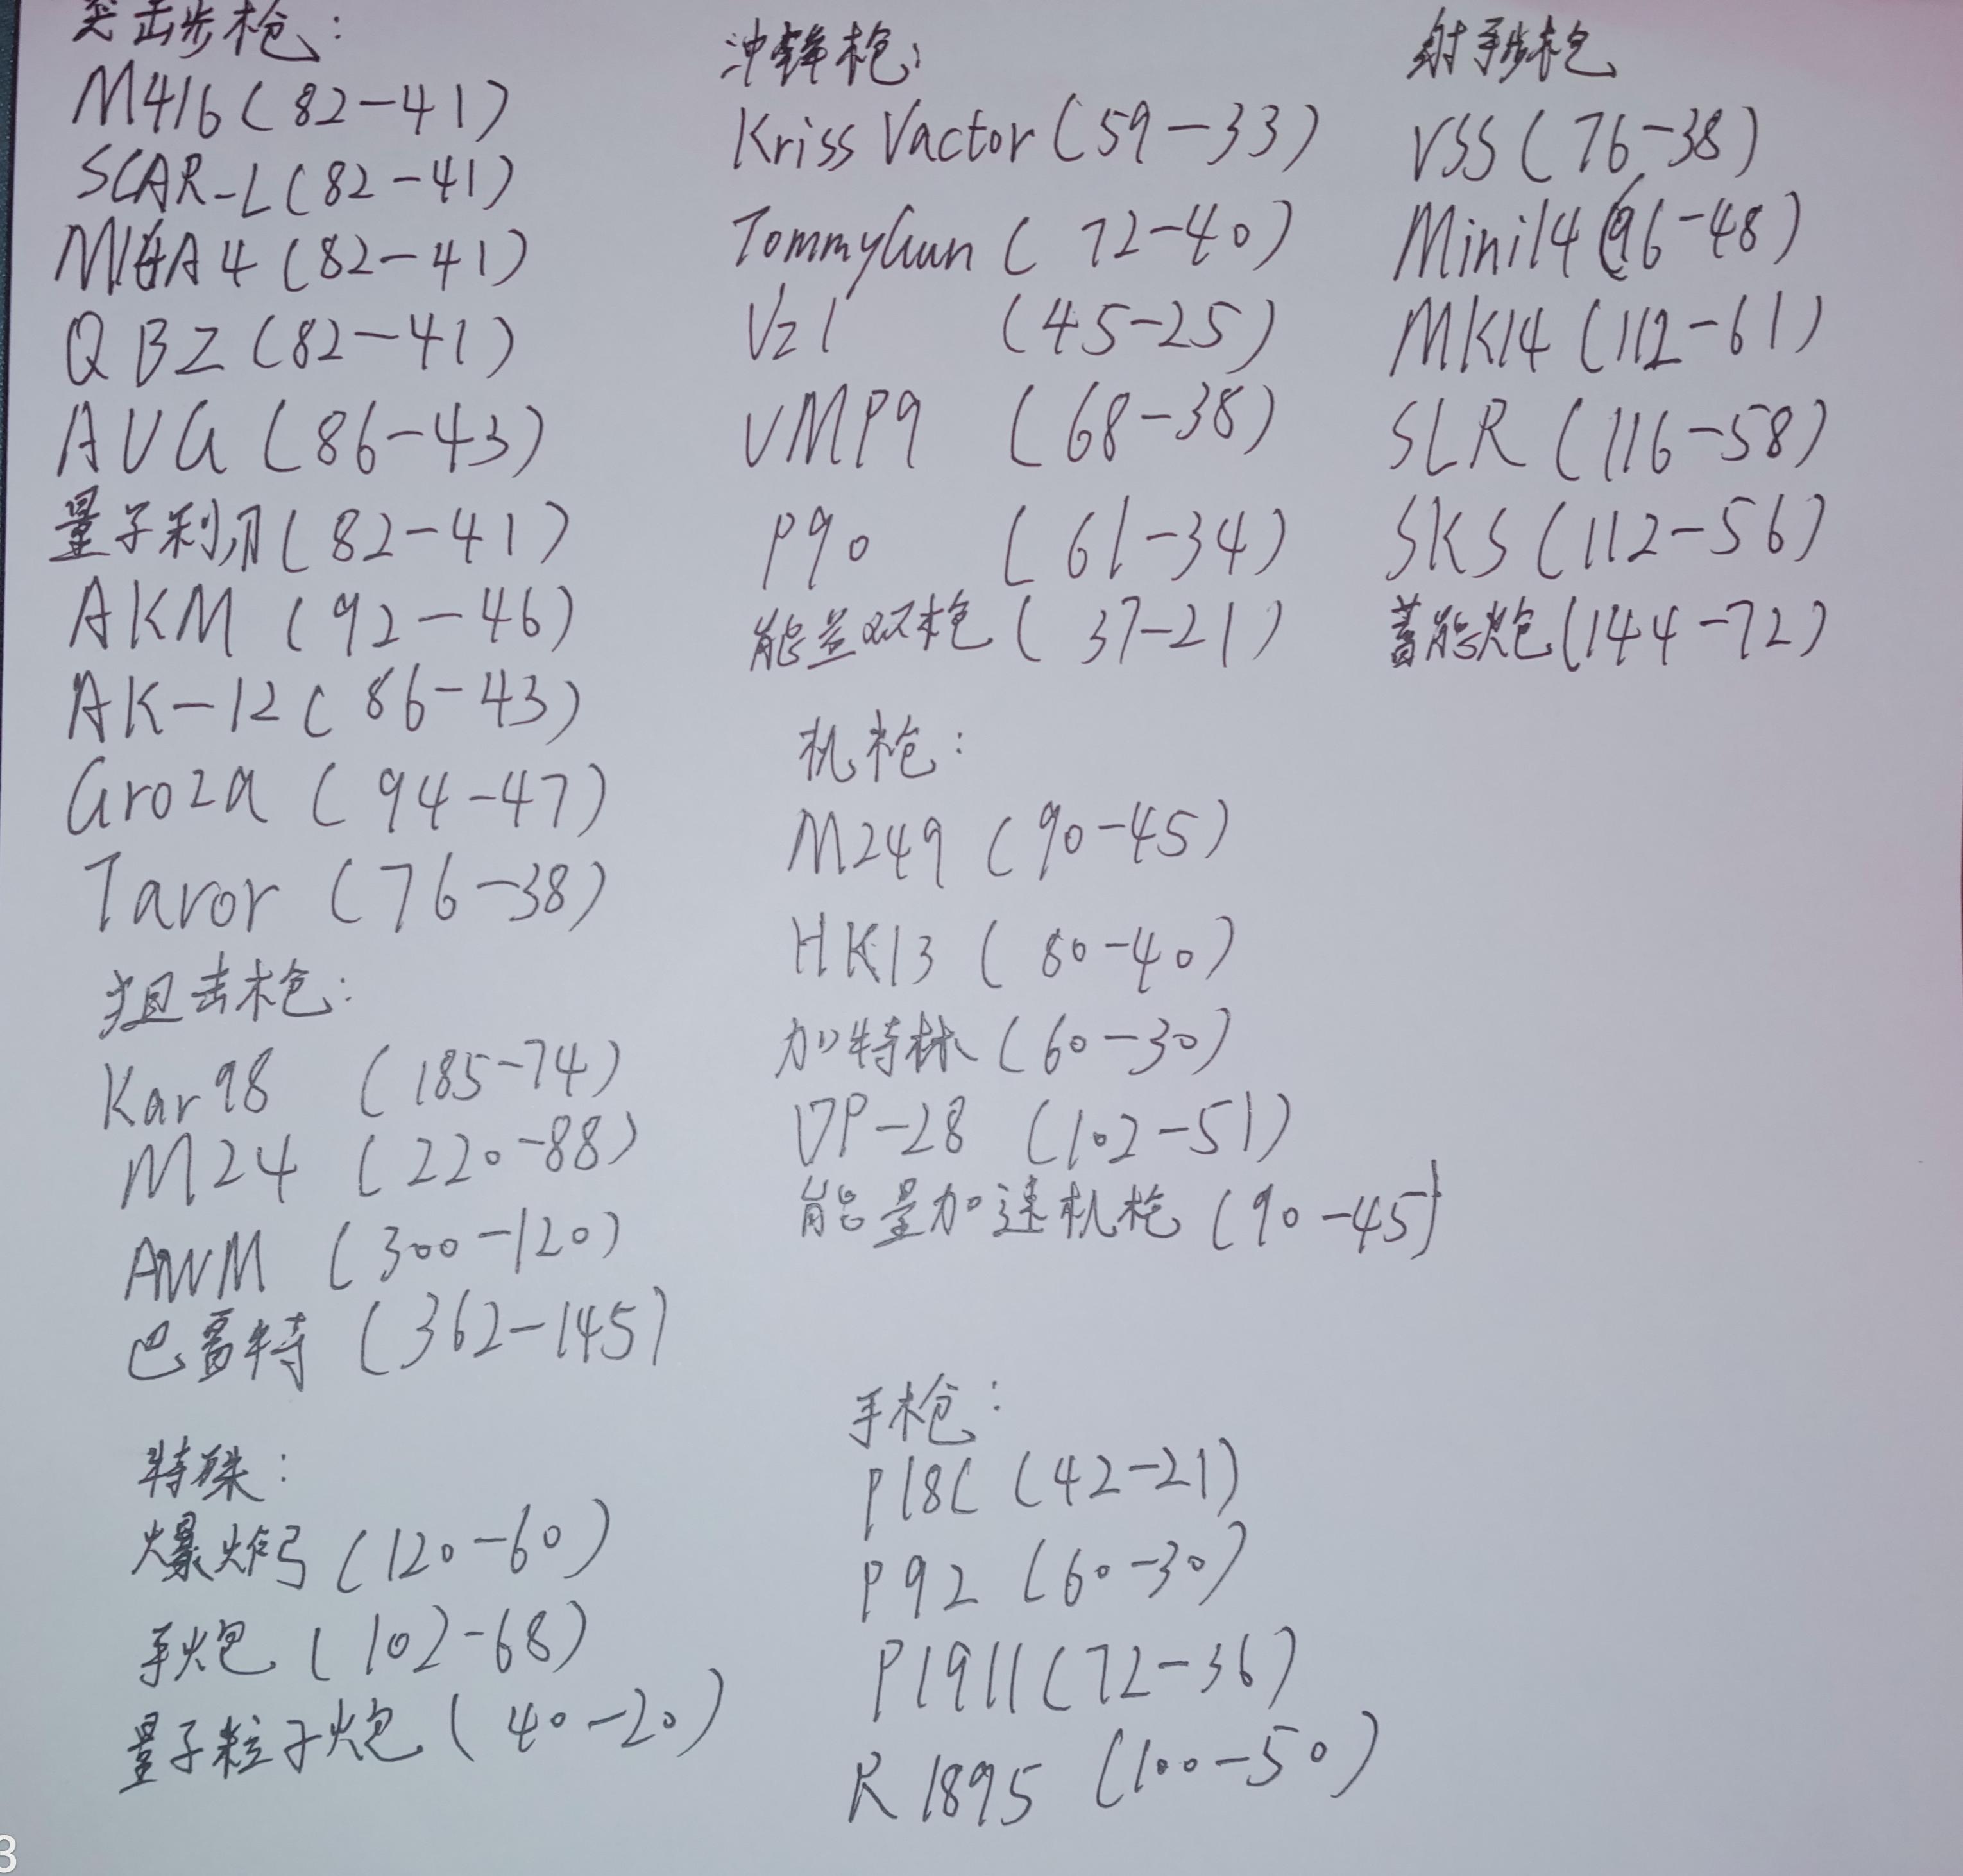 突击步枪:
M416(82-41)
SCAR-L(82-41)
M16A4(82-41)
QBZ(82-41)
AUG(86-43)
量子利爪(82-41)
AKM(92-46)
AK-12(86-43)
Groza(94-47)
Tavor(76-38)
狙击枪:
Kar98(185-74)
M24(220-88)
AWM(300-120)
巴雷特(362-145)
特殊:
爆炸弓(120-60)
手炮(102-68)
量子粒子炮(40-20)
冲锋枪:
Kriss Vactor(59-33)
TommyGun(72-40)
Vz1(45-25)
UMP9(68-38)
P90(61-34)
能量双枪(37-21)
机枪:
M249(90-45)
HK13(80-40)
加特林(60-30)
DP-28(102-51)
能量加速机枪(90-45)
手枪:
P18C(42-21)
P92(60-30)
P1911(72-36)
R1895(100-50)
射手步枪
VSS(76-38)
Mini14(96-48)
MK14(112-61)
SLR(116-58)
SKS(112-56)
蓄能炮(144-72)
3